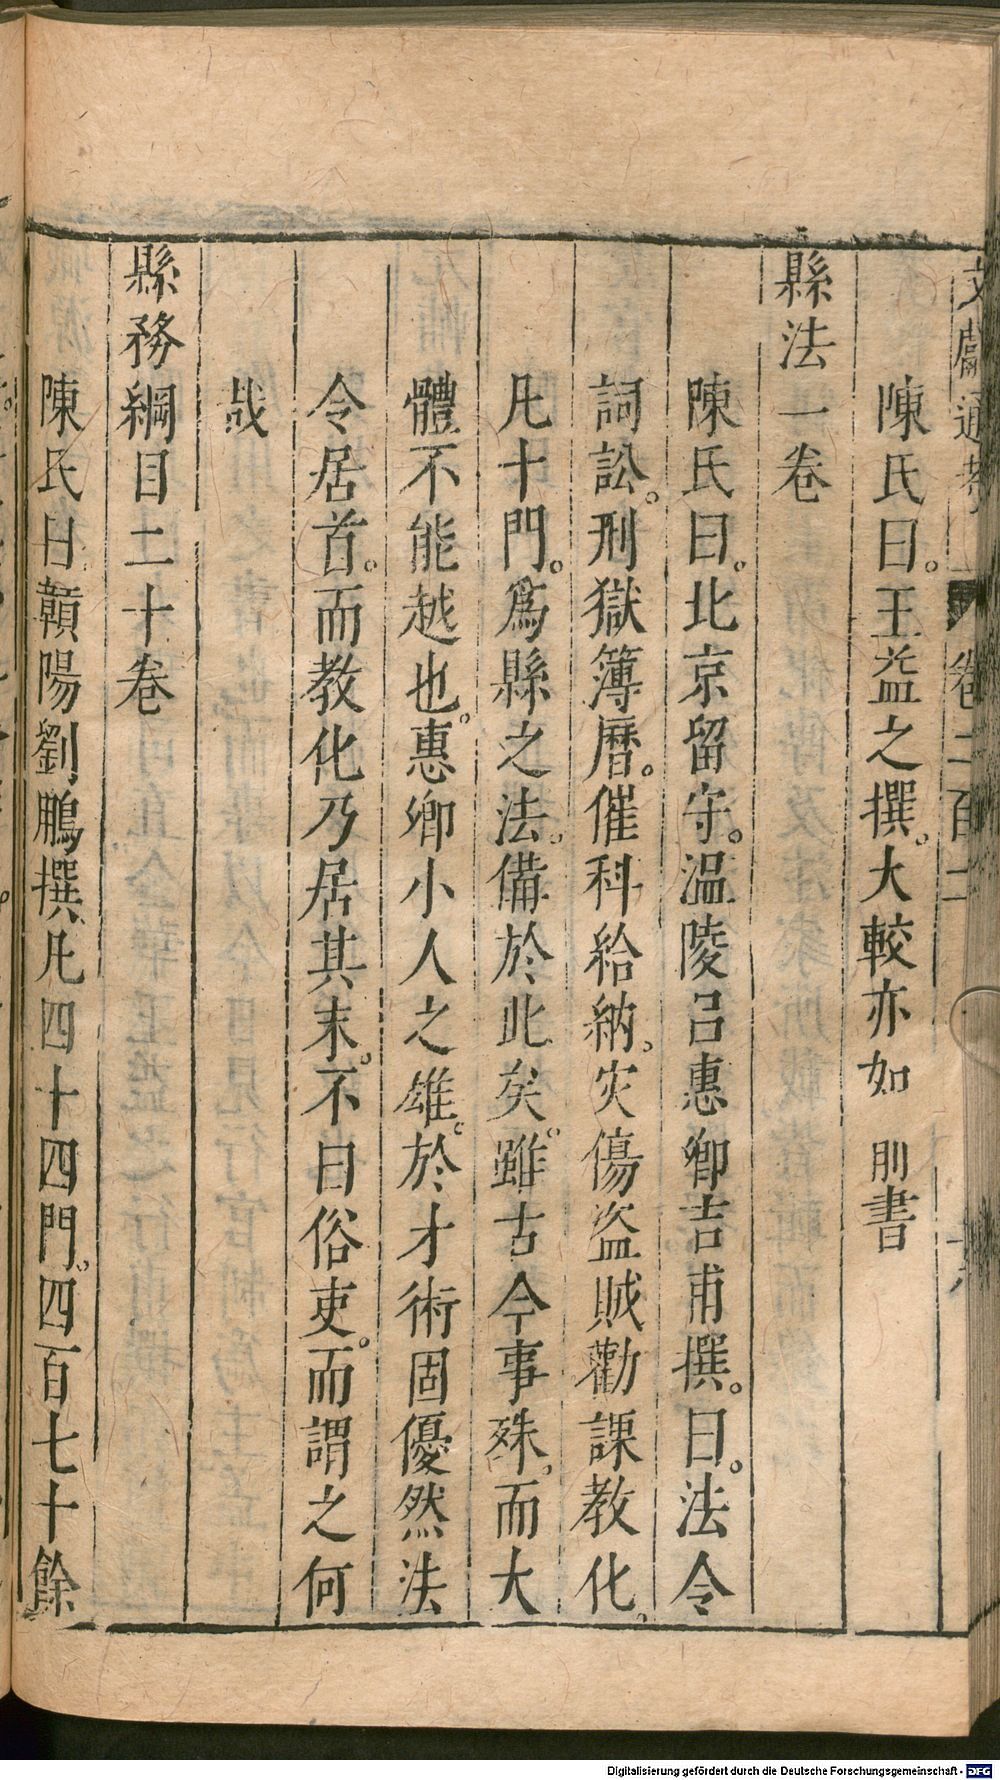 文獻通考 卷二百二
陳氏曰。王益之撰。大較亦如 前書
縣法一卷
陳氏曰。北京留守。溫陵呂惠卿吉甫撰。曰。法令
詞訟。刑獄簿曆。催科給納。灾傷盜賊勸課教化。
凡十門。爲縣之法。備於此矣。雖古今事殊。而大
體不能越也。惠卿小人之雄。於才術固優然法
令居首。而教化乃居其末。不曰俗吏。而謂之何
哉
縣務綱目二十卷
陳氏曰贛陽劉鵬撰。凡四十四門。四百七十餘
Digitalisierung gefördert durch die Deutsche Forschungsgemeinschaft - DFG